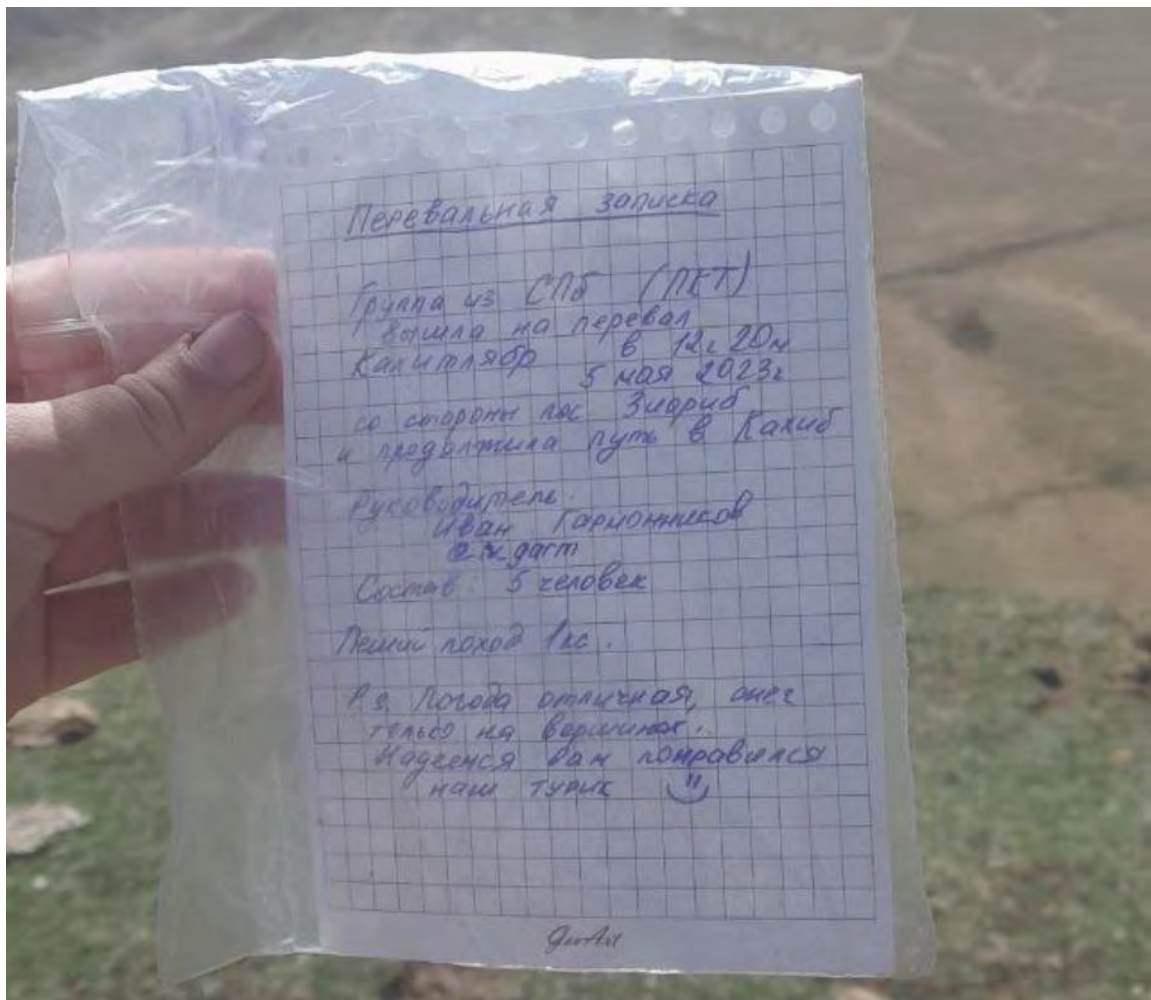 Перевальная записка
Группа из СПб (ПКТ)
вышла на перевал
Калитлябр в 12г 20м
5 мая 2023г
со стороны пос Зиариб
и продолжила путь в Кахиб
Руководитель:
Иван Гармонников
Состав: 5 человек
Пеший поход 1кс.
P.S. Погода отличная, снег
только на вершинах.
Надеемся вам понравился
наш турик